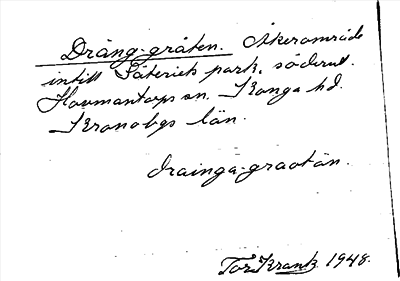 Dräng-gråten. Åkerområde
intill Päteriets park, söderut.
Hovmantorps sn. Konga hd.
Kronobgs län.
drainga-graotän.
Tor Krank 1948.